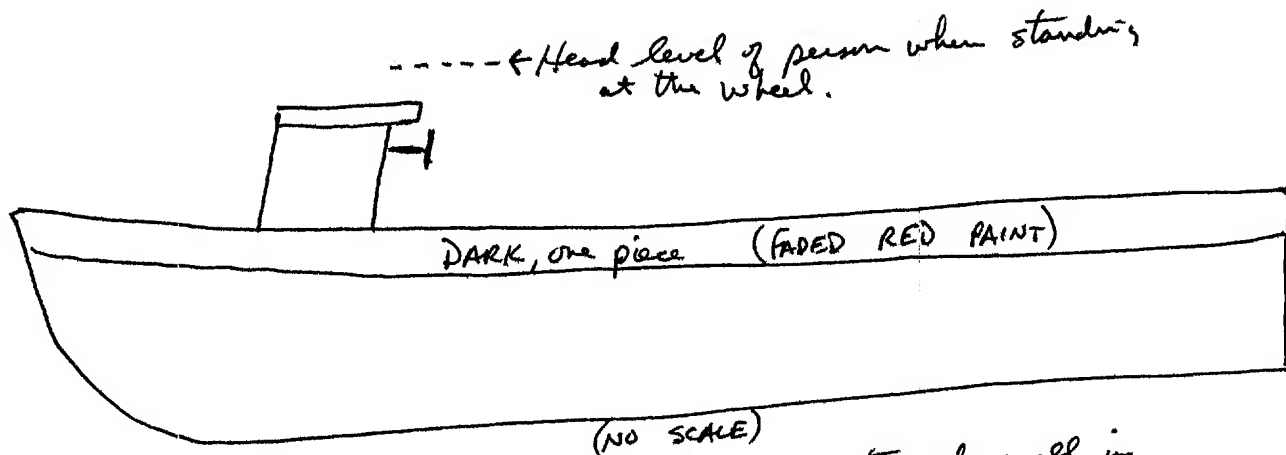 ←Head level of person when standing
at the wheel.
DARK, one piece (FADED RED PAINT)
(NO SCALE)